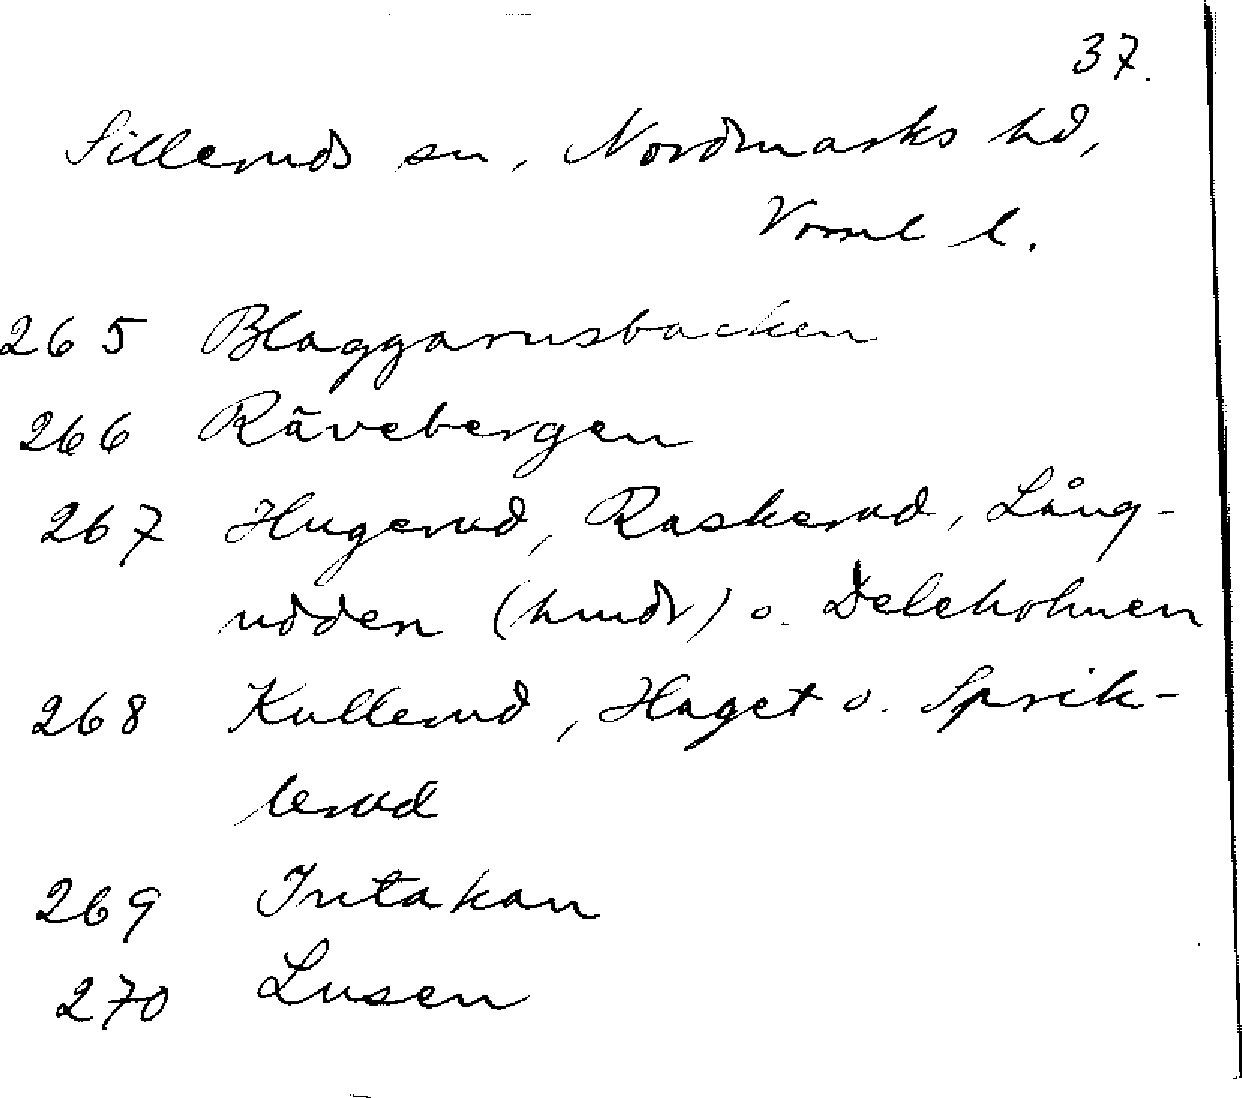 37.
Silleruds sn, Nordmarks hd,
Værml l.
265 Blaggarnsbacken
266 Rävebergen
267 Hugerud, Raskerud, Lång-
udden (hmdr) o. Deleholmen
268 Kullerud, Haget o. Sprik-
lerud
269 Intakan
270 Lusen